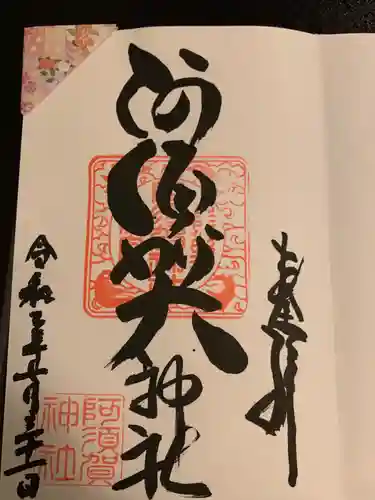 奉拝
阿須賀神社
令和三年十月三十一日
阿須賀
神社